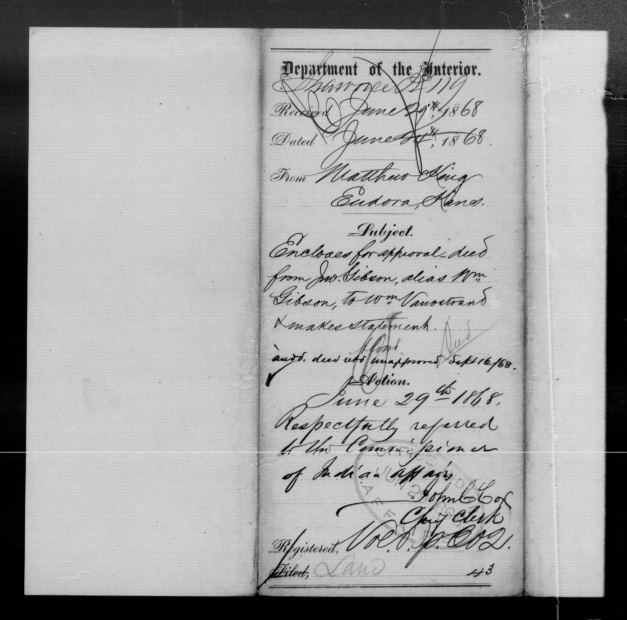 Department of the Interior.
Shawnee K 119
Received June 29th, 1868
Dated June 24th, 1868.
From Matthew King
Eudora, Kans.
Subject.
Encloses for approval deed
from Jno. Gibson, alias Wm
Gibson, to Wm Vanostrand
& makes statement.
Deed
ansd. deed retd unapproved Sept 16/68.
Action.
June 29th 1868.
Respectfully referred
to the Commissioner
of Indian affairs
John C Cox
Chief Clerk
Registered, Vol. p. 602.
Filed, Land 43